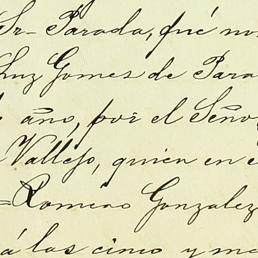 Sr- Parada, qué no
Luz Gomes de Para
año, por el Seño
Vallejo, quien en e
=Romero Gonzalez
á las cinco y me